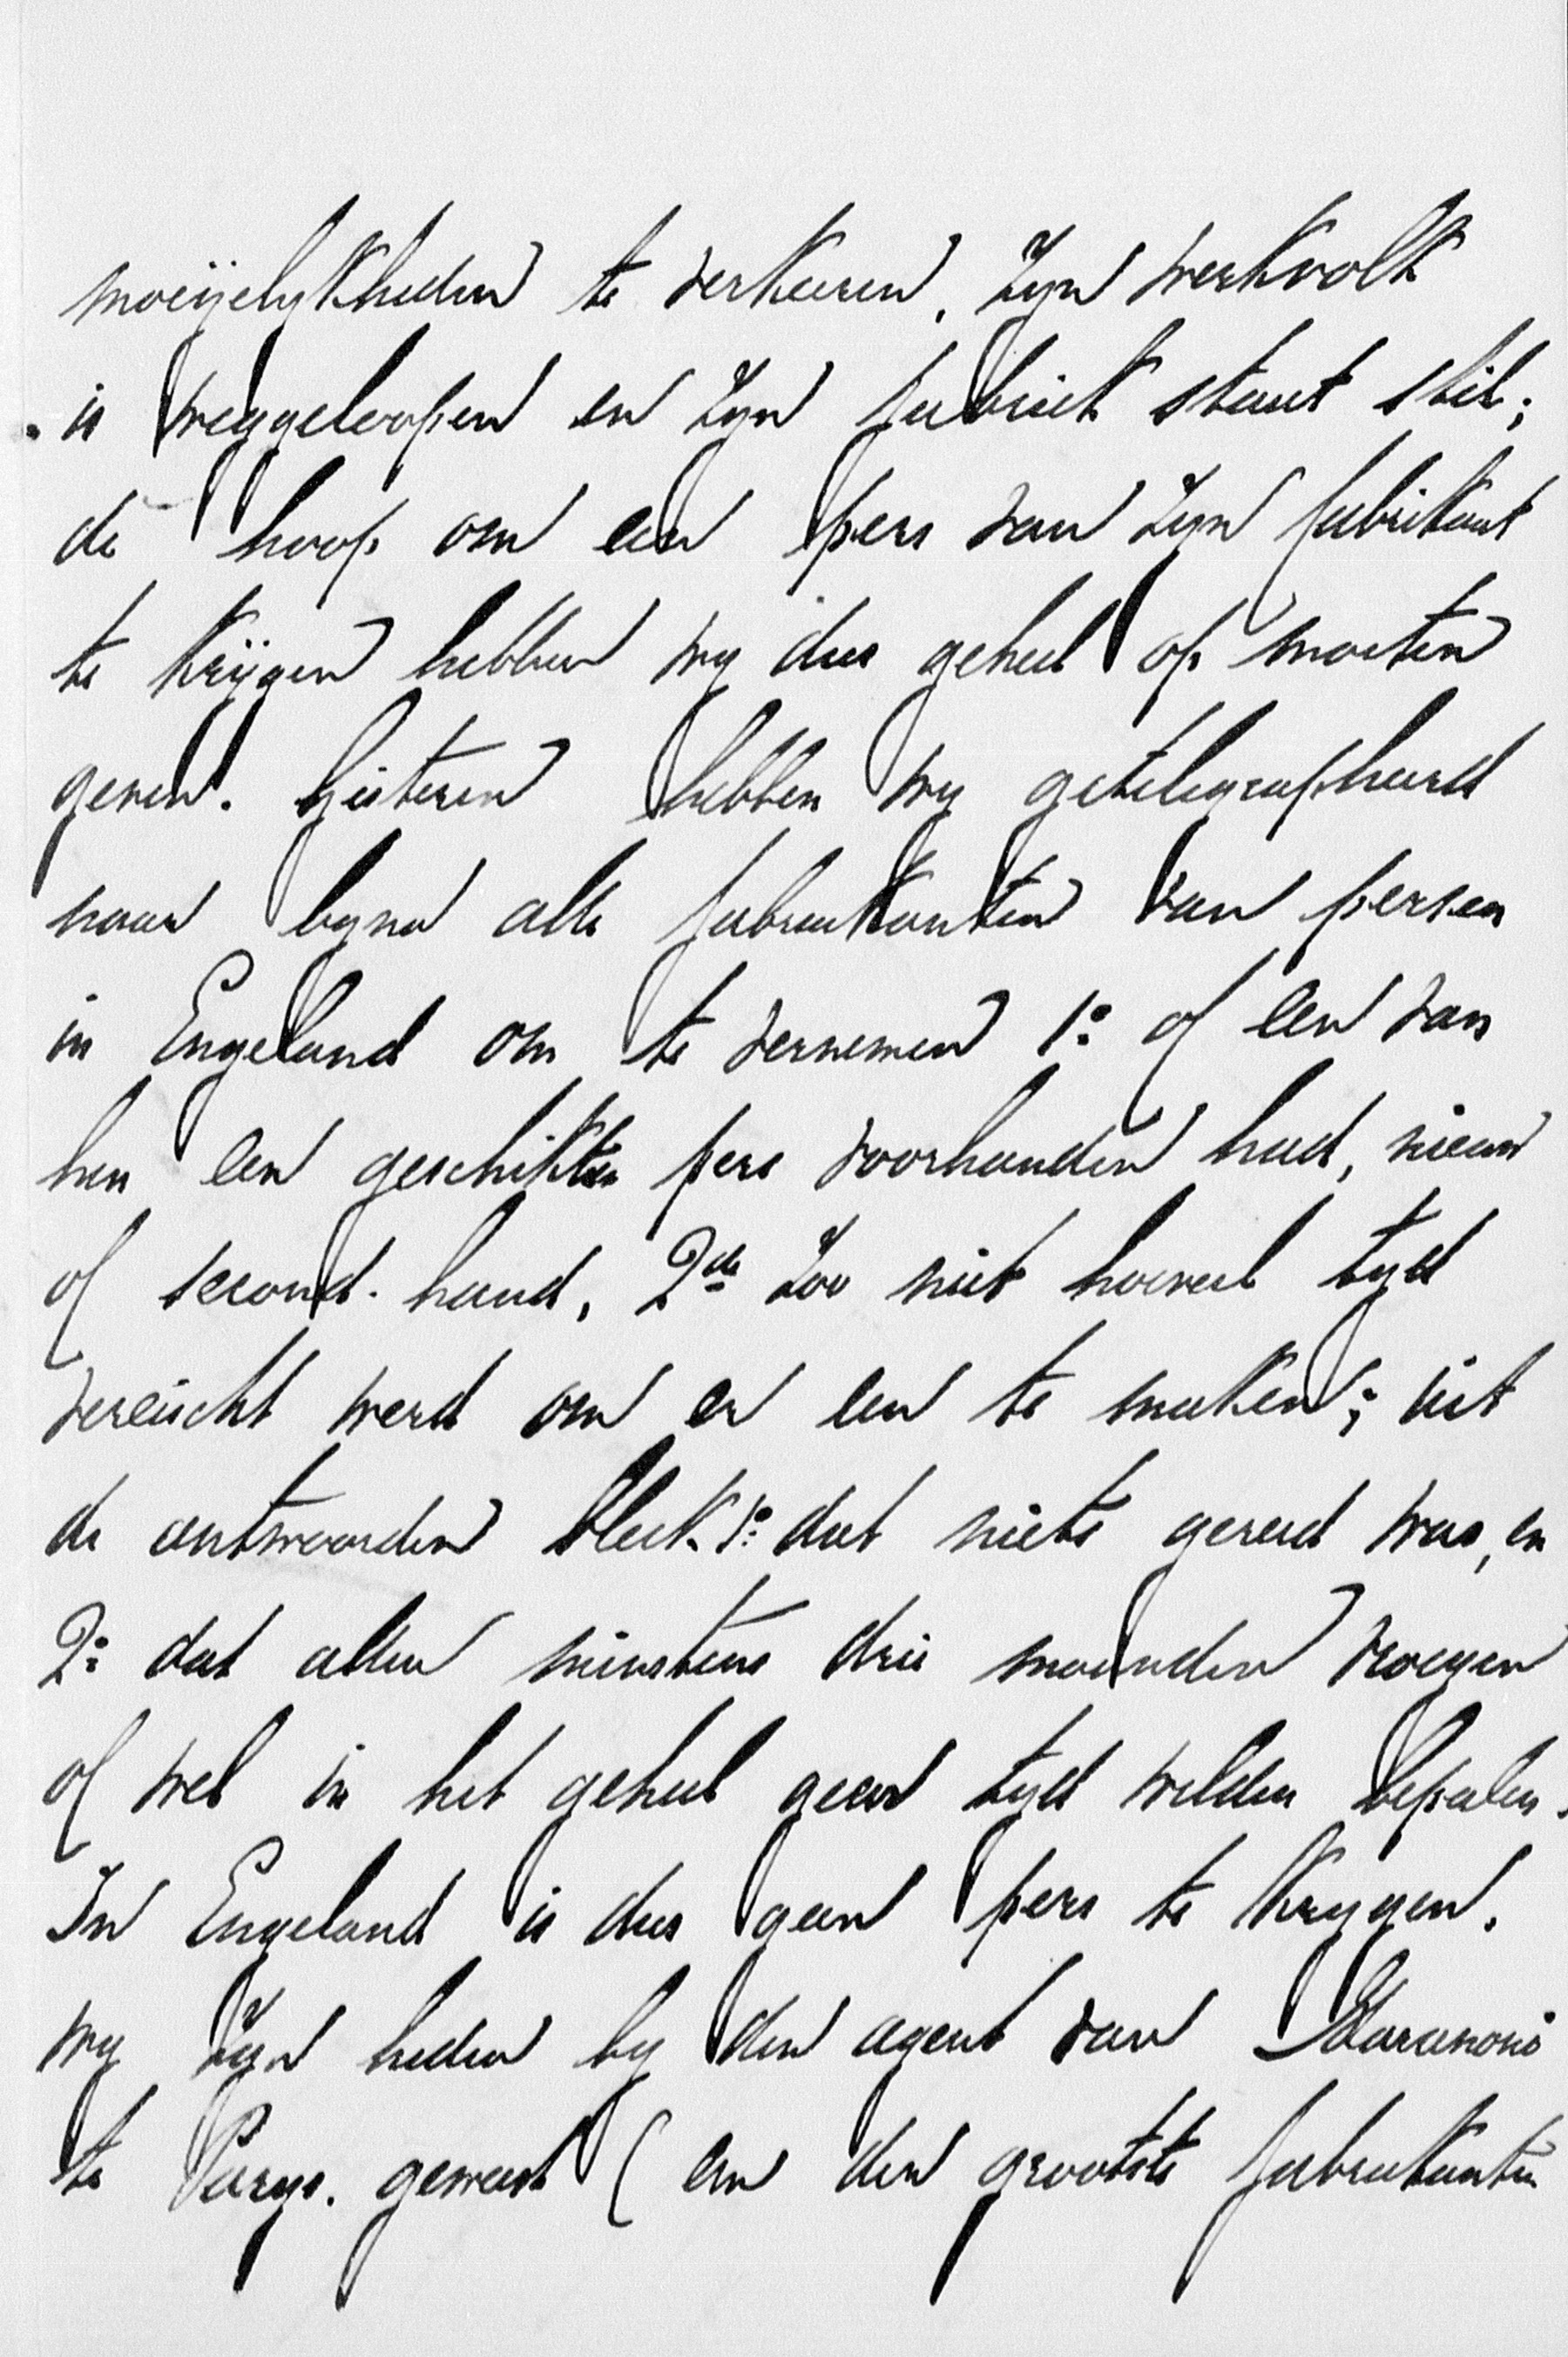 moeijelykheden te verkeeren. Zyn werkvolk
is weggeloopen en zyn fabriek staat stil;
de hoop om een pers van zyn fabrikant
te krijgen hebben wy dus geheel op moeten
geven. Gisteren hebben wy getelegrapheerd
naar byna alle fabriekanten van persen
in Engeland om te vernemen 1º of een van
hen een geschikte pers voorhanden had, nieuw
of second-hand, 2de Zoo niet hoeveel tyd
vereischt werd om er een te maken; uit
de antwoorden bleek 1º dat niets gereed was, en
2º dat allen minstens drie maanden vroegen
of wel in het geheel geen tyd wilden bepalen.
In Engeland is dus geen pers te krygen.
wy zyn heden by den agent van Maranoni
te Parys. geweest (een der grootste fabriekanten